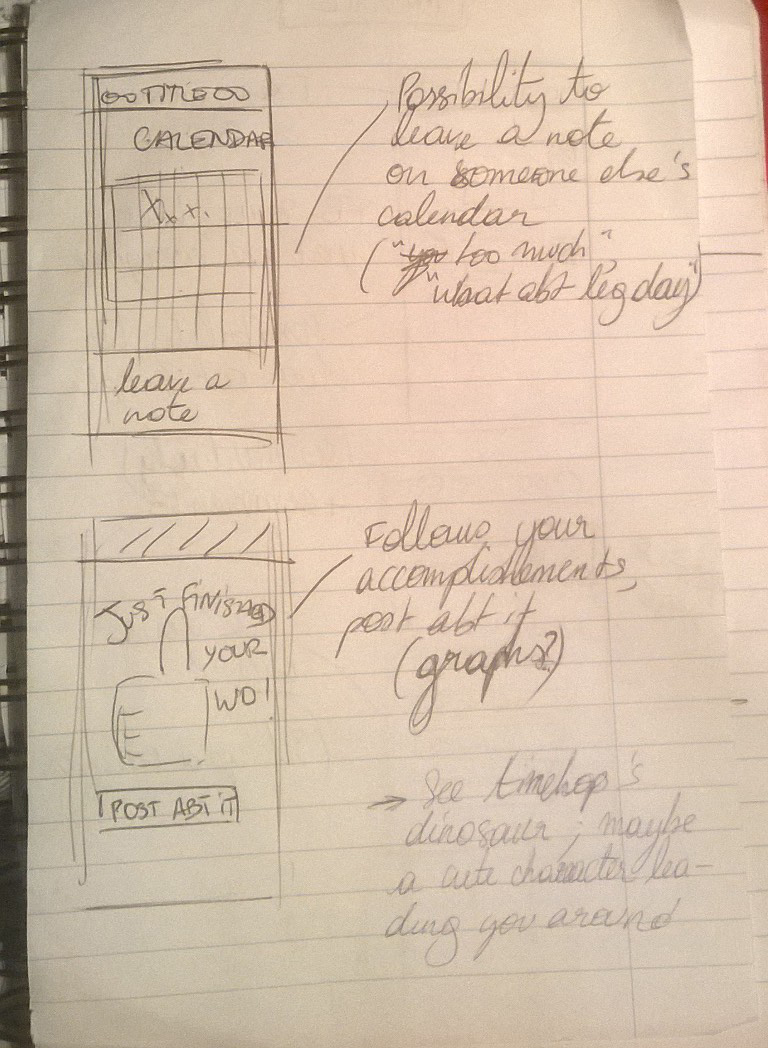 TITLE
CALENDAR
X x x.
leave a
note
Possibility to
leave a note
on someone else's
calendar
(" too much",
"what abt leg day")
JUST FINISHED
YOUR
WO!
POST ABT IT
Follows your
accomplishements,
post abt it
(graphs?)
→ See timehop's
dinosaur ; maybe
a cute character lea-
ding you around